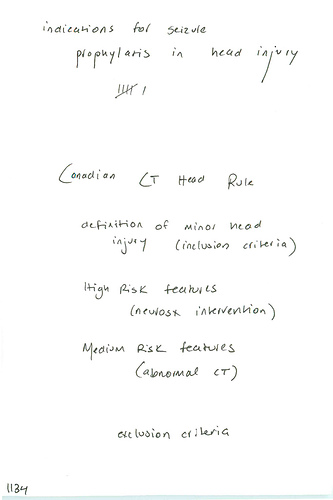 indications for seizure
prophylaxis in head injury
Canadian CT Head Rule
definition of minor head
injury (inclusion criteria)
High Risk features
(neurosx intervention)
Medium Risk features
(abnormal CT)
exclusion criteria
1134